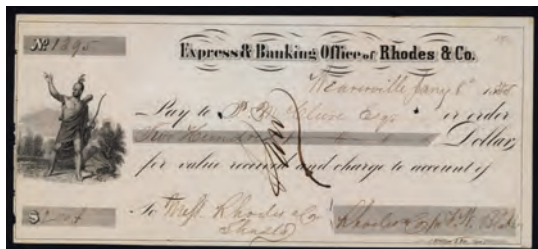 No. 1295
Express & Banking Office of Rhodes & Co.
Weaverville Jany 6th 1855
Pay to P. M. Clure Esqr or order
Two Hundred Dollars,
for value received and charge to account of
$
To Messrs Rhodes & Co
Shasta
Rhodes & Co